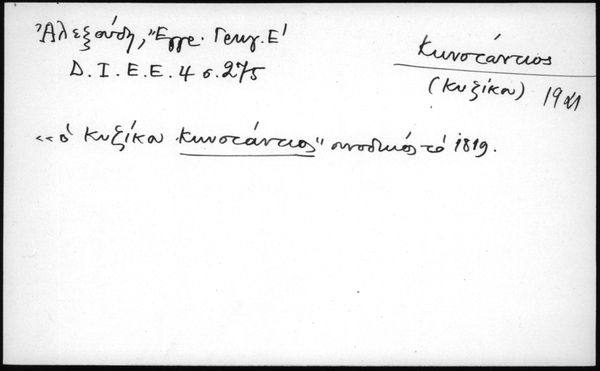 Ἀλεξούδη, "Ἔγγρ. Γρηγ. Ε'
Δ. Ι. Ε. Ε. 4 σ. 275
Κωνστάντιος
(Κυζίκου) 1921
«ὁ Κυζίκου Κωνστάντιος" συνοδικός τό 1819.